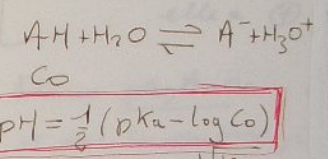 AH + H₂O ⇌ A⁻ + H₃O⁺
Co
pH = 1/2 (pKa - log Co)